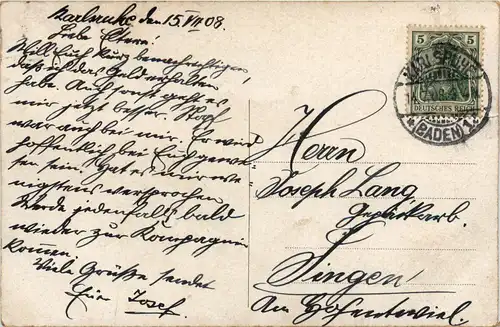 Karlsruhe den 15.VII 08.
Liebe Eltern!
Will Euch kurz benachrichtigen,
daß ich das Geld erhalten
habe. Auch sonst geht es
mir jetzt besser.
war auch bei mir. Er wird
hoffentlich bei Euch gewe-
sen sein. Hat es mir we-
nigstens versprochen
Werde jedenfalls bald
wieder zur Kompagnie
kommen.
Viele Grüße sendet
Euer Josef.
5 5
DEUTSCHES REICH
KARLSRUHE
* (BADEN) 1 *
Herrn
Joseph Lang,
Singen
Am Hohentwiel.